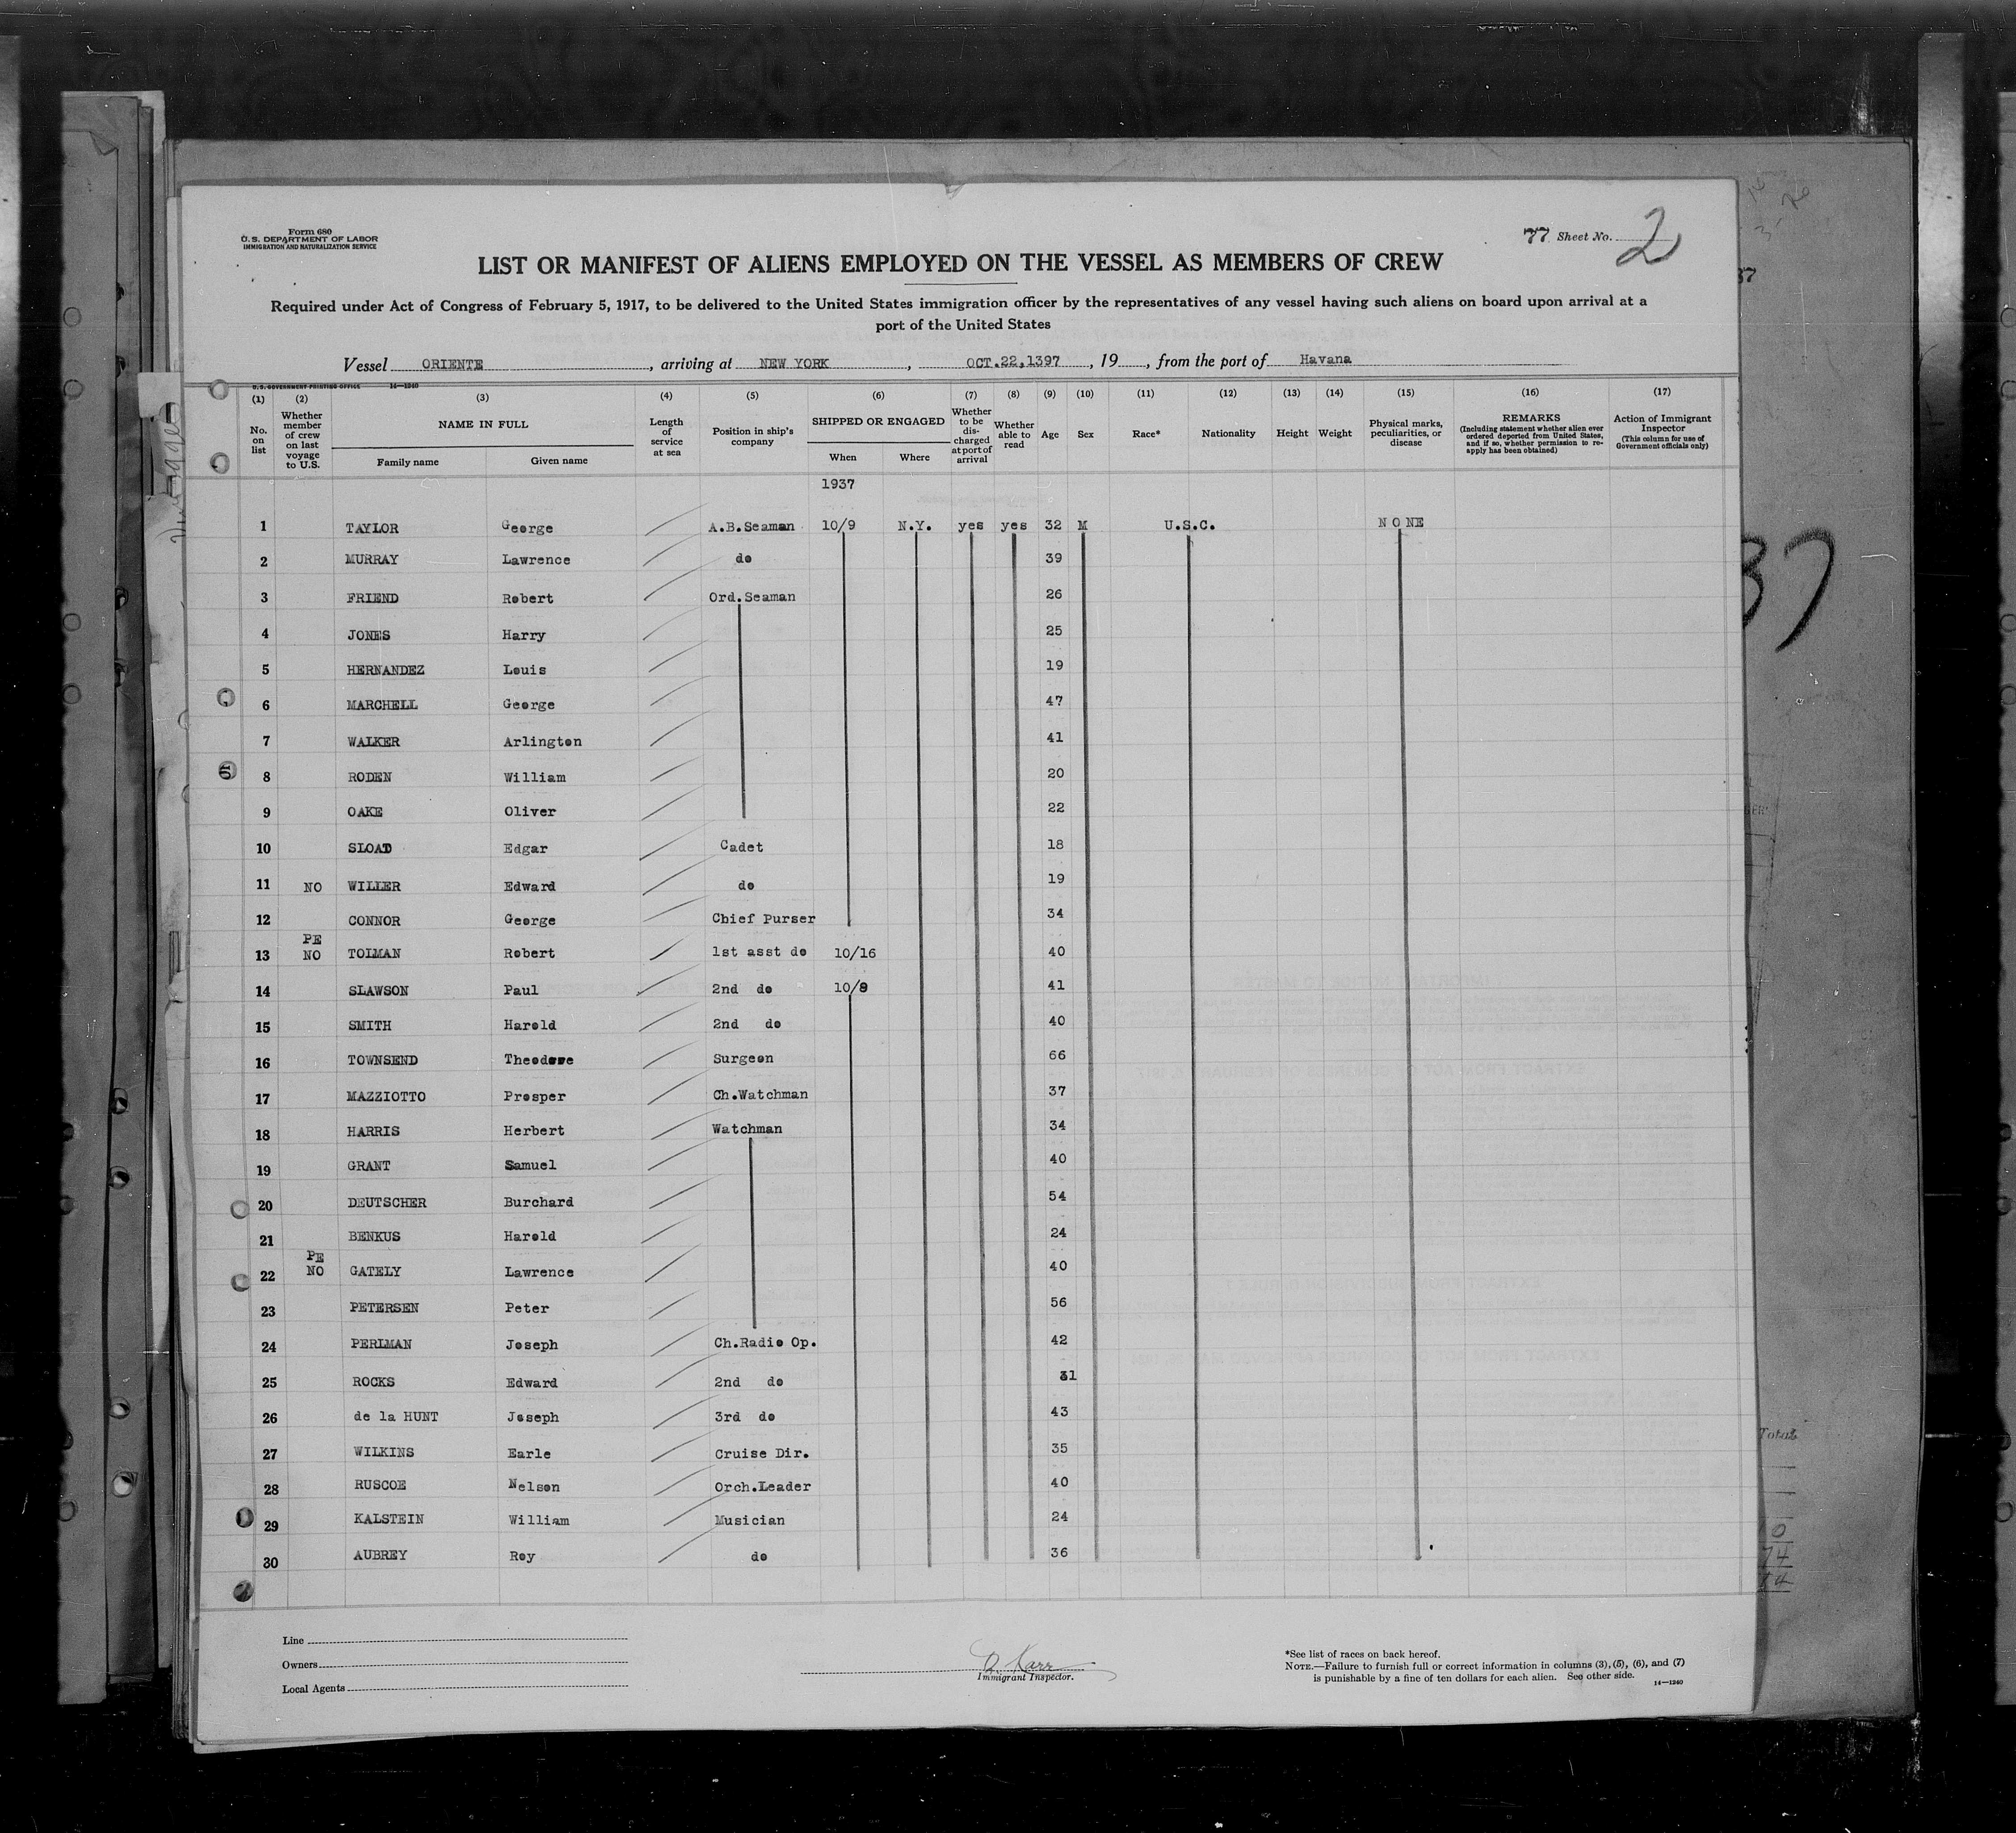 Form 680
U. S. DEPARTMENT OF LABOR
IMMIGRATION AND NATURALIZATION SERVICE
77 Sheet No. 2
LIST OR MANIFEST OF ALIENS EMPLOYED ON THE VESSEL AS MEMBERS OF CREW
Required under Act of Congress of February 5, 1917, to be delivered to the United States immigration officer by the representatives of any vessel having such aliens on board upon arrival at a
port of the United States
Vessel ORIENTE, arriving at NEW YORK, OCT.22,1397, 19, from the port of Havana
U. S. GOVERNMENT PRINTING OFFICE 14—1240
(1) (2) (3) (4) (5) (6) (7) (8) (9) (10) (11) (12) (13) (14) (15) (16) (17)
No. on list
Whether member of crew on last voyage to U.S.
NAME IN FULL
Family name
Given name
Length of service at sea
Position in ship's company
SHIPPED OR ENGAGED
When
Where
Whether to be discharged at port of arrival
Whether able to read
Age
Sex
Race*
Nationality
Height
Weight
Physical marks, peculiarities, or disease
REMARKS
(Including statement whether alien ever ordered deported from United States, and if so, whether permission to reapply has been obtained)
Action of Immigrant Inspector
(This column for use of Government officials only)
1937
1 TAYLOR George A.B.Seaman 10/9 N.Y. yes yes 32 M U.S.C. NONE
2 MURRAY Lawrence do 39
3 FRIEND Robert Ord.Seaman 26
4 JONES Harry 25
5 HERNANDEZ Louis 19
6 MARCHELL George 47
7 WALKER Arlington 41
8 RODEN William 20
9 OAKE Oliver 22
10 SLOAD Edgar Cadet 18
11 NO WILLER Edward do 19
12 CONNOR George Chief Purser 34
PE
13 NO TOLMAN Robert 1st asst do 10/16 40
14 SLAWSON Paul 2nd do 10/9 41
15 SMITH Harold 2nd do 40
16 TOWNSEND Theodore Surgeon 66
17 MAZZIOTTO Prosper Ch.Watchman 37
18 HARRIS Herbert Watchman 34
19 GRANT Samuel 40
20 DEUTSCHER Burchard 54
21 BENKUS Harold 24
PE
22 NO GATELY Lawrence 40
23 PETERSEN Peter 56
24 PERLMAN Joseph Ch.Radio Op. 42
25 ROCKS Edward 2nd do 31
26 de la HUNT Joseph 3rd do 43
27 WILKINS Earle Cruise Dir. 35
28 RUSCOE Nelson Orch.Leader 40
29 KALSTEIN William Musician 24
30 AUBREY Roy do 36
Line
Owners
Local Agents
Karr
Immigrant Inspector.
*See list of races on back hereof.
NOTE.—Failure to furnish full or correct information in columns (3), (5), (6), and (7)
is punishable by a fine of ten dollars for each alien. See other side.
14—1240
37
Total